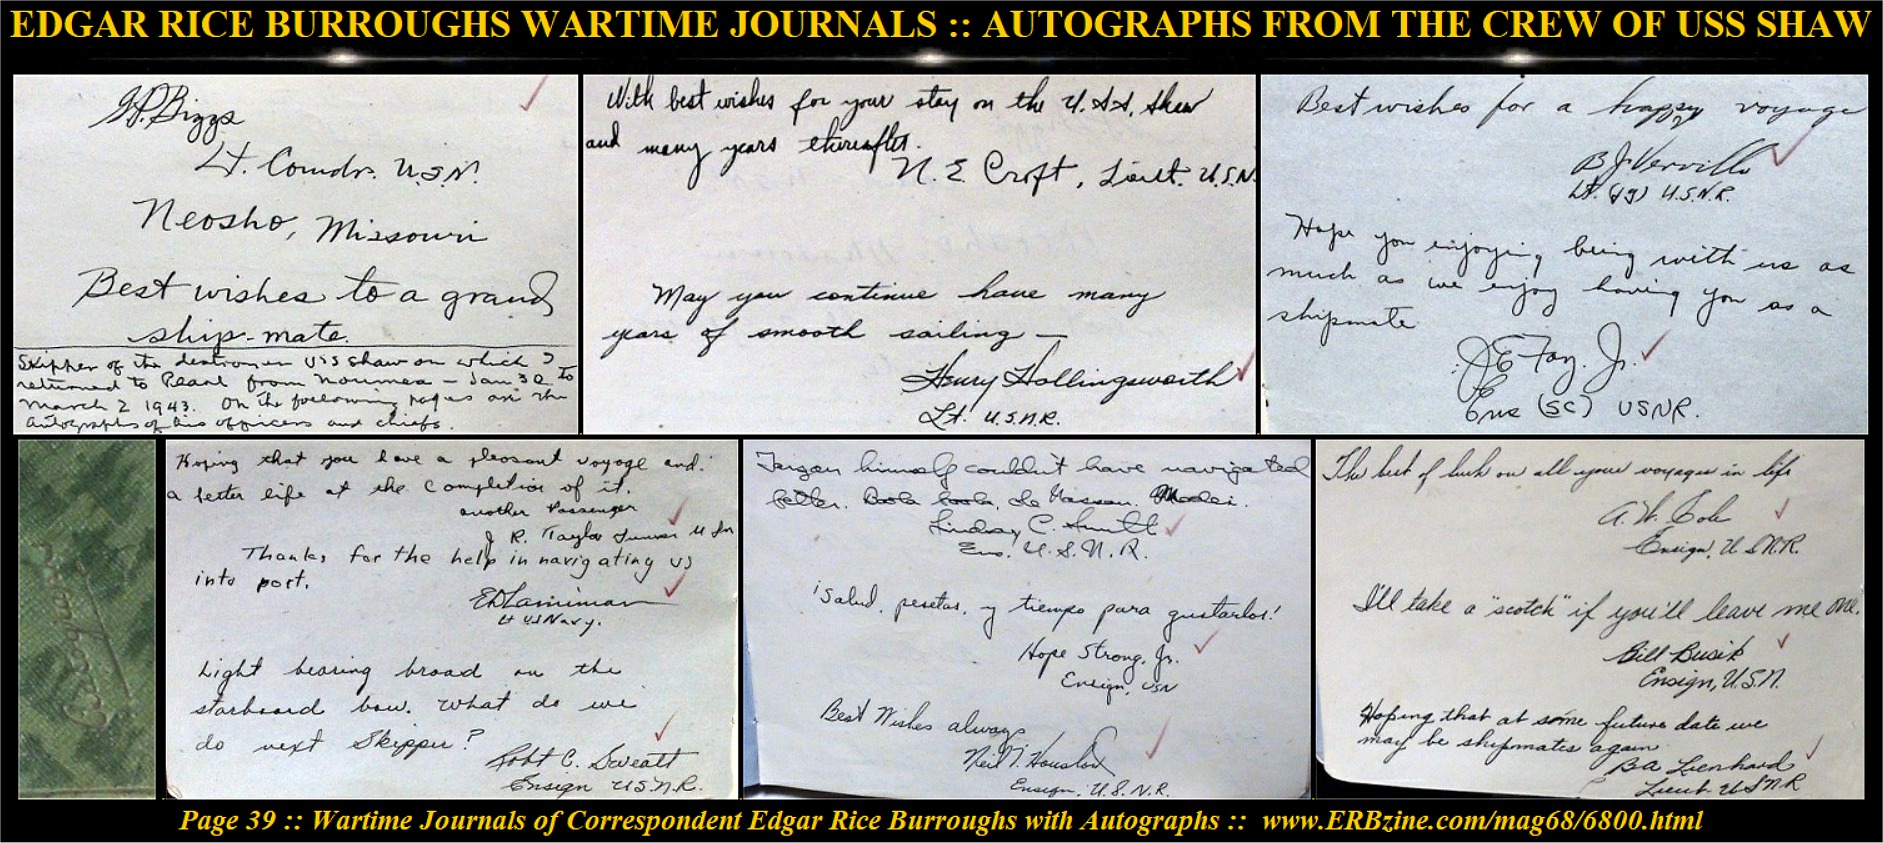 EDGAR RICE BURROUGHS WARTIME JOURNALS :: AUTOGRAPHS FROM THE CREW OF USS SHAW
Biggs
Lt. Comdr. U.S.N.
Neosho, Missouri
Best wishes to a grand
ship-mate.
Skipper of the destroyer USS Shaw on which I
returned to Pearl from Noumea – Jan 30 to
March 2 1943. On the following pages are the
autographs of his officers and chiefs.
With best wishes for your stay on the U.S.S. Shaw
and many years thereafter.
N. E. Croft, Lieut. U.S.N.
May you continue have many
years of smooth sailing —
Henry Hollingsworth
Lt. U.S.N.R.
Best wishes for a happy voyage
B J Verville
Lt. (jg) U.S.N.R.
Hope you enjoying being with us as
much as we enjoy having you as a
shipmate
J E Fay, Jr.
Ens (SC) USNR.
Hoping that you have a pleasant voyage and
a better life at the completion of it.
another Passenger
J R. Taylor
Thanks for the help in navigating us
into port.
Lt US Navy.
Light bearing broad on the
starboard bow. What do we
do next Skipper?
Robt C. Sweatt
Ensign U.S.N.R.
Tarzan himself couldn't have navigated
better.
Lindsay C.
Ens. U.S.N.R.
¡Salud, pesetas, y tiempo para gustarlos!
Hope Strong, Jr.
Ensign, USN
Best Wishes always
Neil
Ensign, U.S.N.R.
The best of luck on all your voyages in life
A. W. Cole
Ensign, U.S.N.R.
I'll take a "scotch" if you'll leave me one.
Bill Busik
Ensign, U.S.N.
Hoping that at some future date we
may be shipmates again
B A Lienhard
Lieut. USNR
Page 39 :: Wartime Journals of Correspondent Edgar Rice Burroughs with Autographs :: www.ERBzine.com/mag68/6800.html